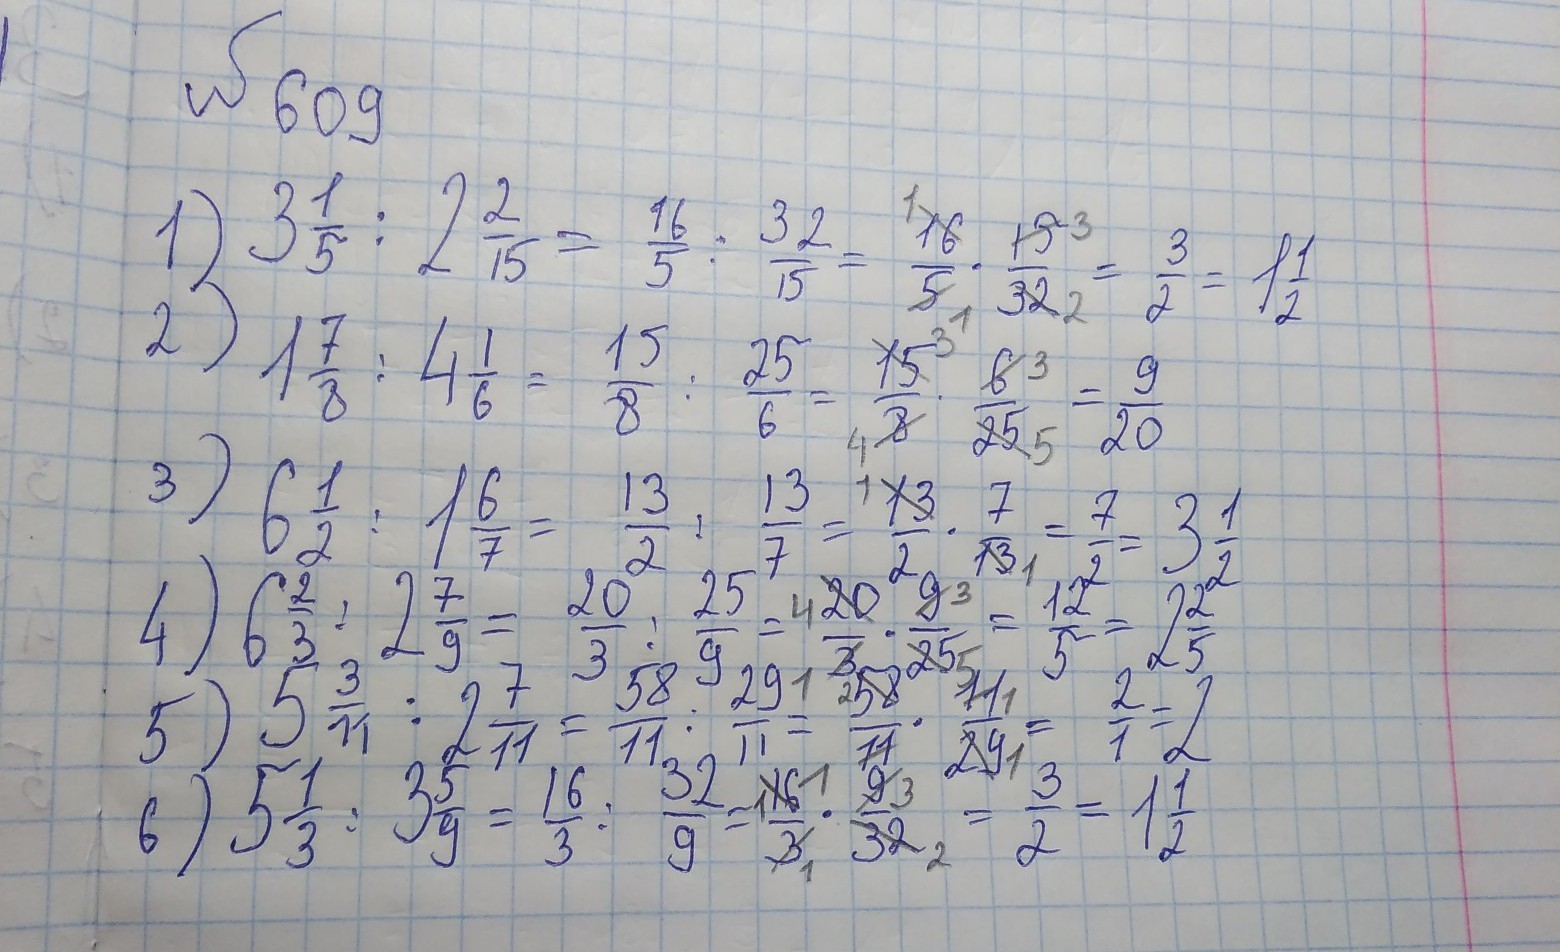 № 609
1) 3 1/5 : 2 2/15 = 16/5 : 32/15 = 16/5 · 15/32 = 3/2 = 1 1/2
2) 1 7/8 : 4 1/6 = 15/8 : 25/6 = 15/8 · 6/25 = 9/20
3) 6 1/2 : 1 6/7 = 13/2 : 13/7 = 13/2 · 7/13 = 7/2 = 3 1/2
4) 6 2/3 : 2 7/9 = 20/3 : 25/9 = 20/3 · 9/25 = 12/5 = 2 2/5
5) 5 3/11 : 2 7/11 = 58/11 : 29/11 = 58/11 · 11/29 = 2/1 = 2
6) 5 1/3 : 3 5/9 = 16/3 : 32/9 = 16/3 · 9/32 = 3/2 = 1 1/2